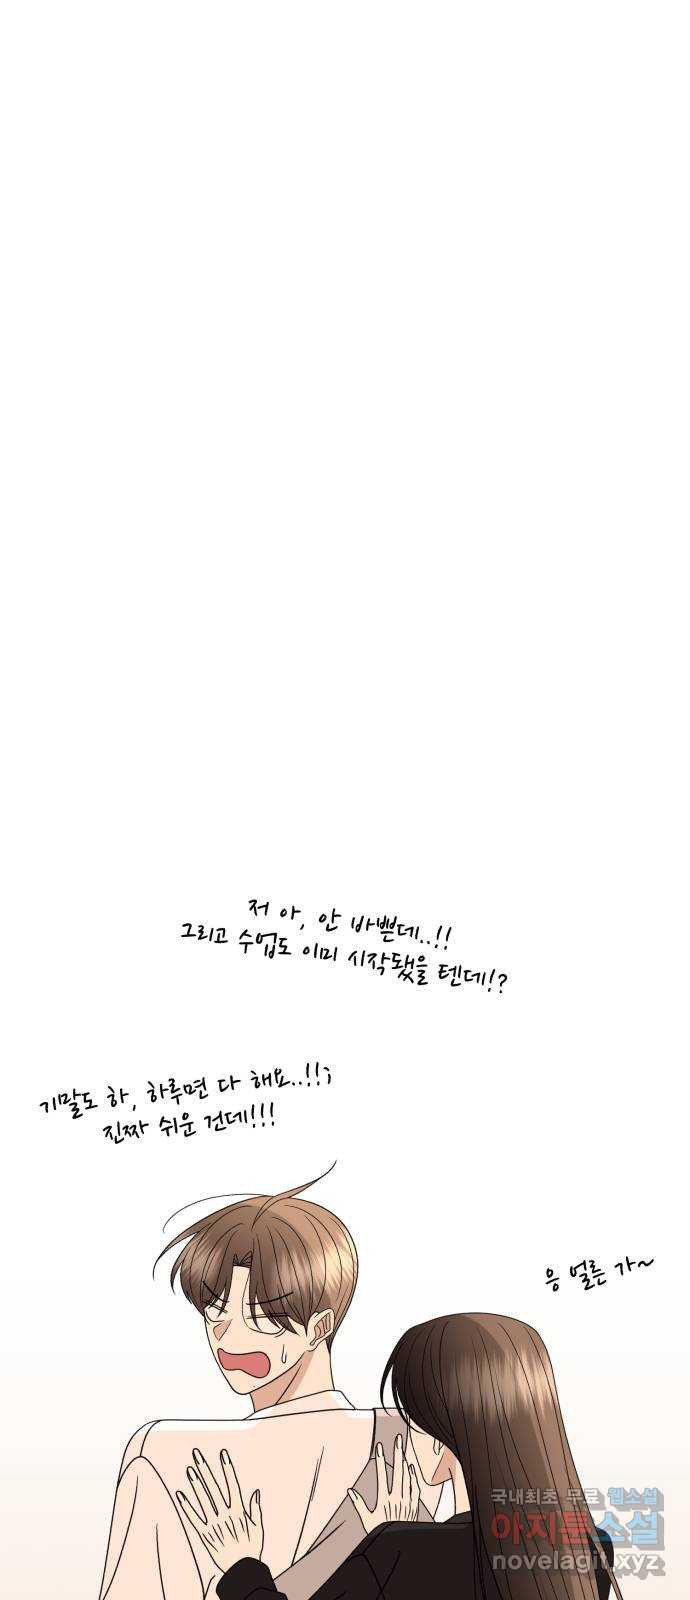 저 아, 안 바쁜데..!!
그리고 수업도 이미 시작됐을 텐데!?
기말도 하, 하루면 다 해요..!!;
진짜 쉬운 건데!!!
응 얼른 가~
국내최초 무료 웹소설
아지툰소설
novelagit.xyz